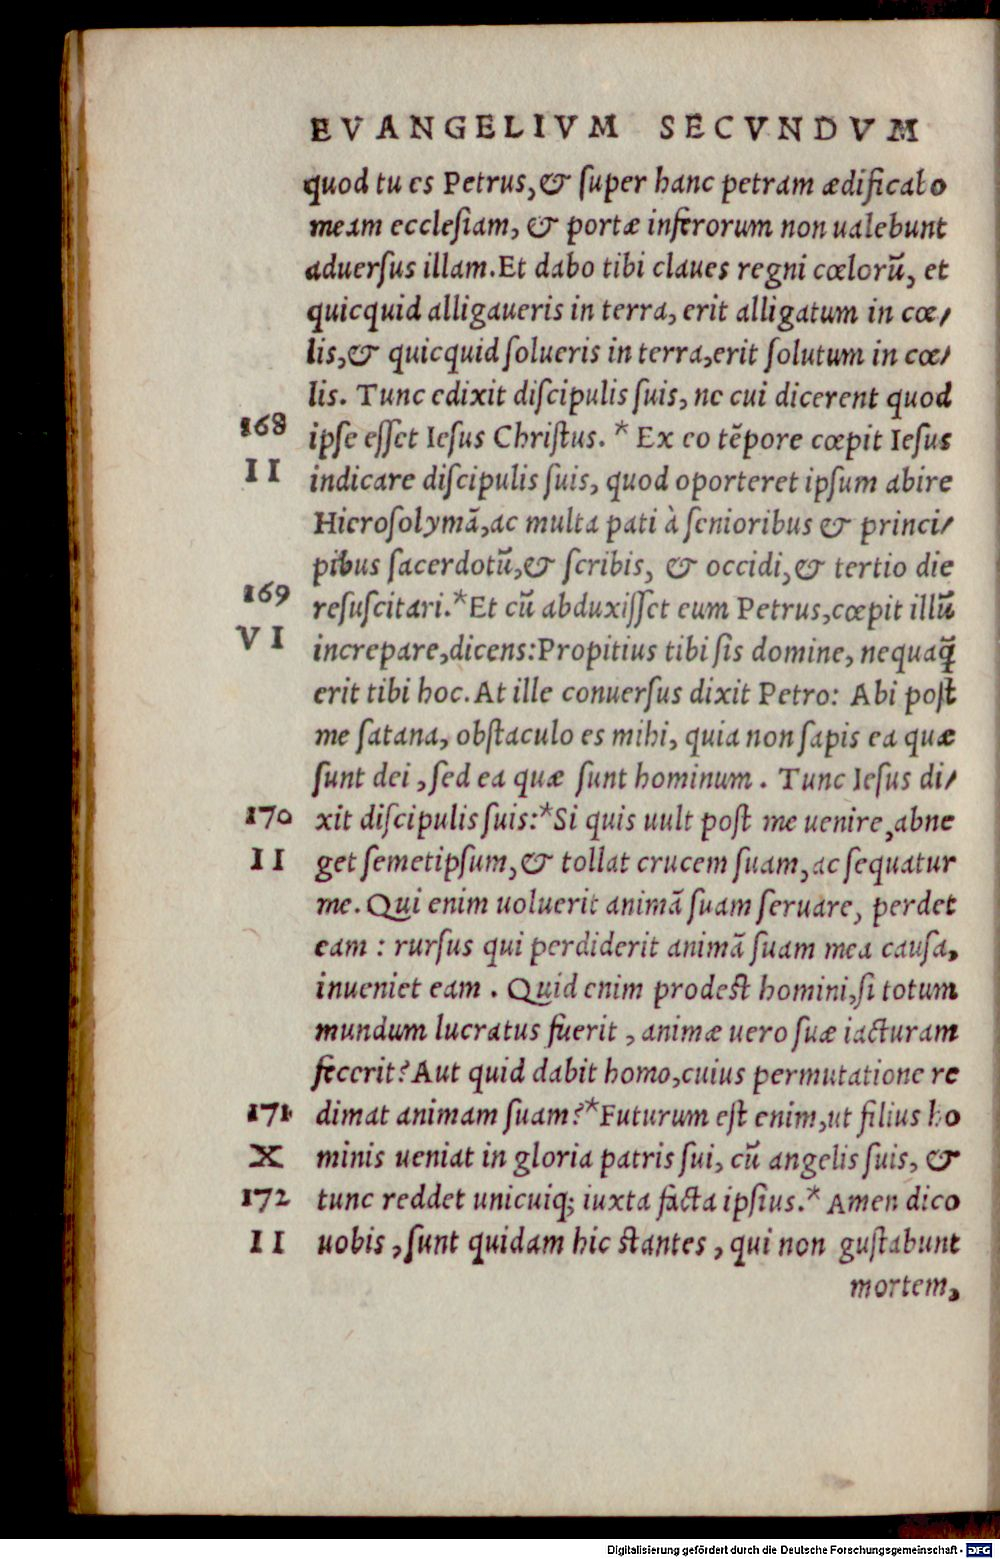 EVANGELIVM SECVNDVM
quod tu es Petrus, & ſuper hanc petram ædificabo
meam eccleſiam, & portæ inferorum non ualebunt
aduerſus illam. Et dabo tibi claues regni cœlorũ, et
quicquid alligaueris in terra, erit alligatum in cœ/
lis, & quicquid ſolueris in terra, erit ſolutum in cœ/
lis. Tunc edixit diſcipulis ſuis, ne cui dicerent quod
168 ipſe eſſet Ieſus Chriſtus. * Ex eo tẽpore cœpit Ieſus
II indicare diſcipulis ſuis, quod oporteret ipſum abire
Hieroſolymã, ac multa pati à ſenioribus & princi/
pibus ſacerdotũ, & ſcribis, & occidi, & tertio die
169 reſuſcitari. * Et cũ abduxiſſet eum Petrus, cœpit illũ
VI increpare, dicens: Propitius tibi ſis domine, nequaq̃
erit tibi hoc. At ille conuerſus dixit Petro: Abi poſt
me ſatana, obſtaculo es mihi, quia non ſapis ea quæ
ſunt dei, ſed ea quæ ſunt hominum. Tunc Ieſus di/
170 xit diſcipulis ſuis: * Si quis uult poſt me uenire, abne
II get ſemetipſum, & tollat crucem ſuam, ac ſequatur
me. Qui enim uoluerit animã ſuam ſeruare, perdet
eam: rurſus qui perdiderit animã ſuam mea cauſa,
inueniet eam. Quid enim prodeſt homini, ſi totum
mundum lucratus fuerit, animæ uero ſuæ iacturam
fecerit? Aut quid dabit homo, cuius permutatione re
171 dimat animam ſuam? * Futurum eſt enim, ut filius ho
X minis ueniat in gloria patris ſui, cũ angelis ſuis, &
172 tunc reddet unicuiq; iuxta facta ipſius. * Amen dico
II uobis, ſunt quidam hic ſtantes, qui non guſtabunt
mortem,
Digitalisierung gefördert durch die Deutsche Forschungsgemeinschaft - DFG